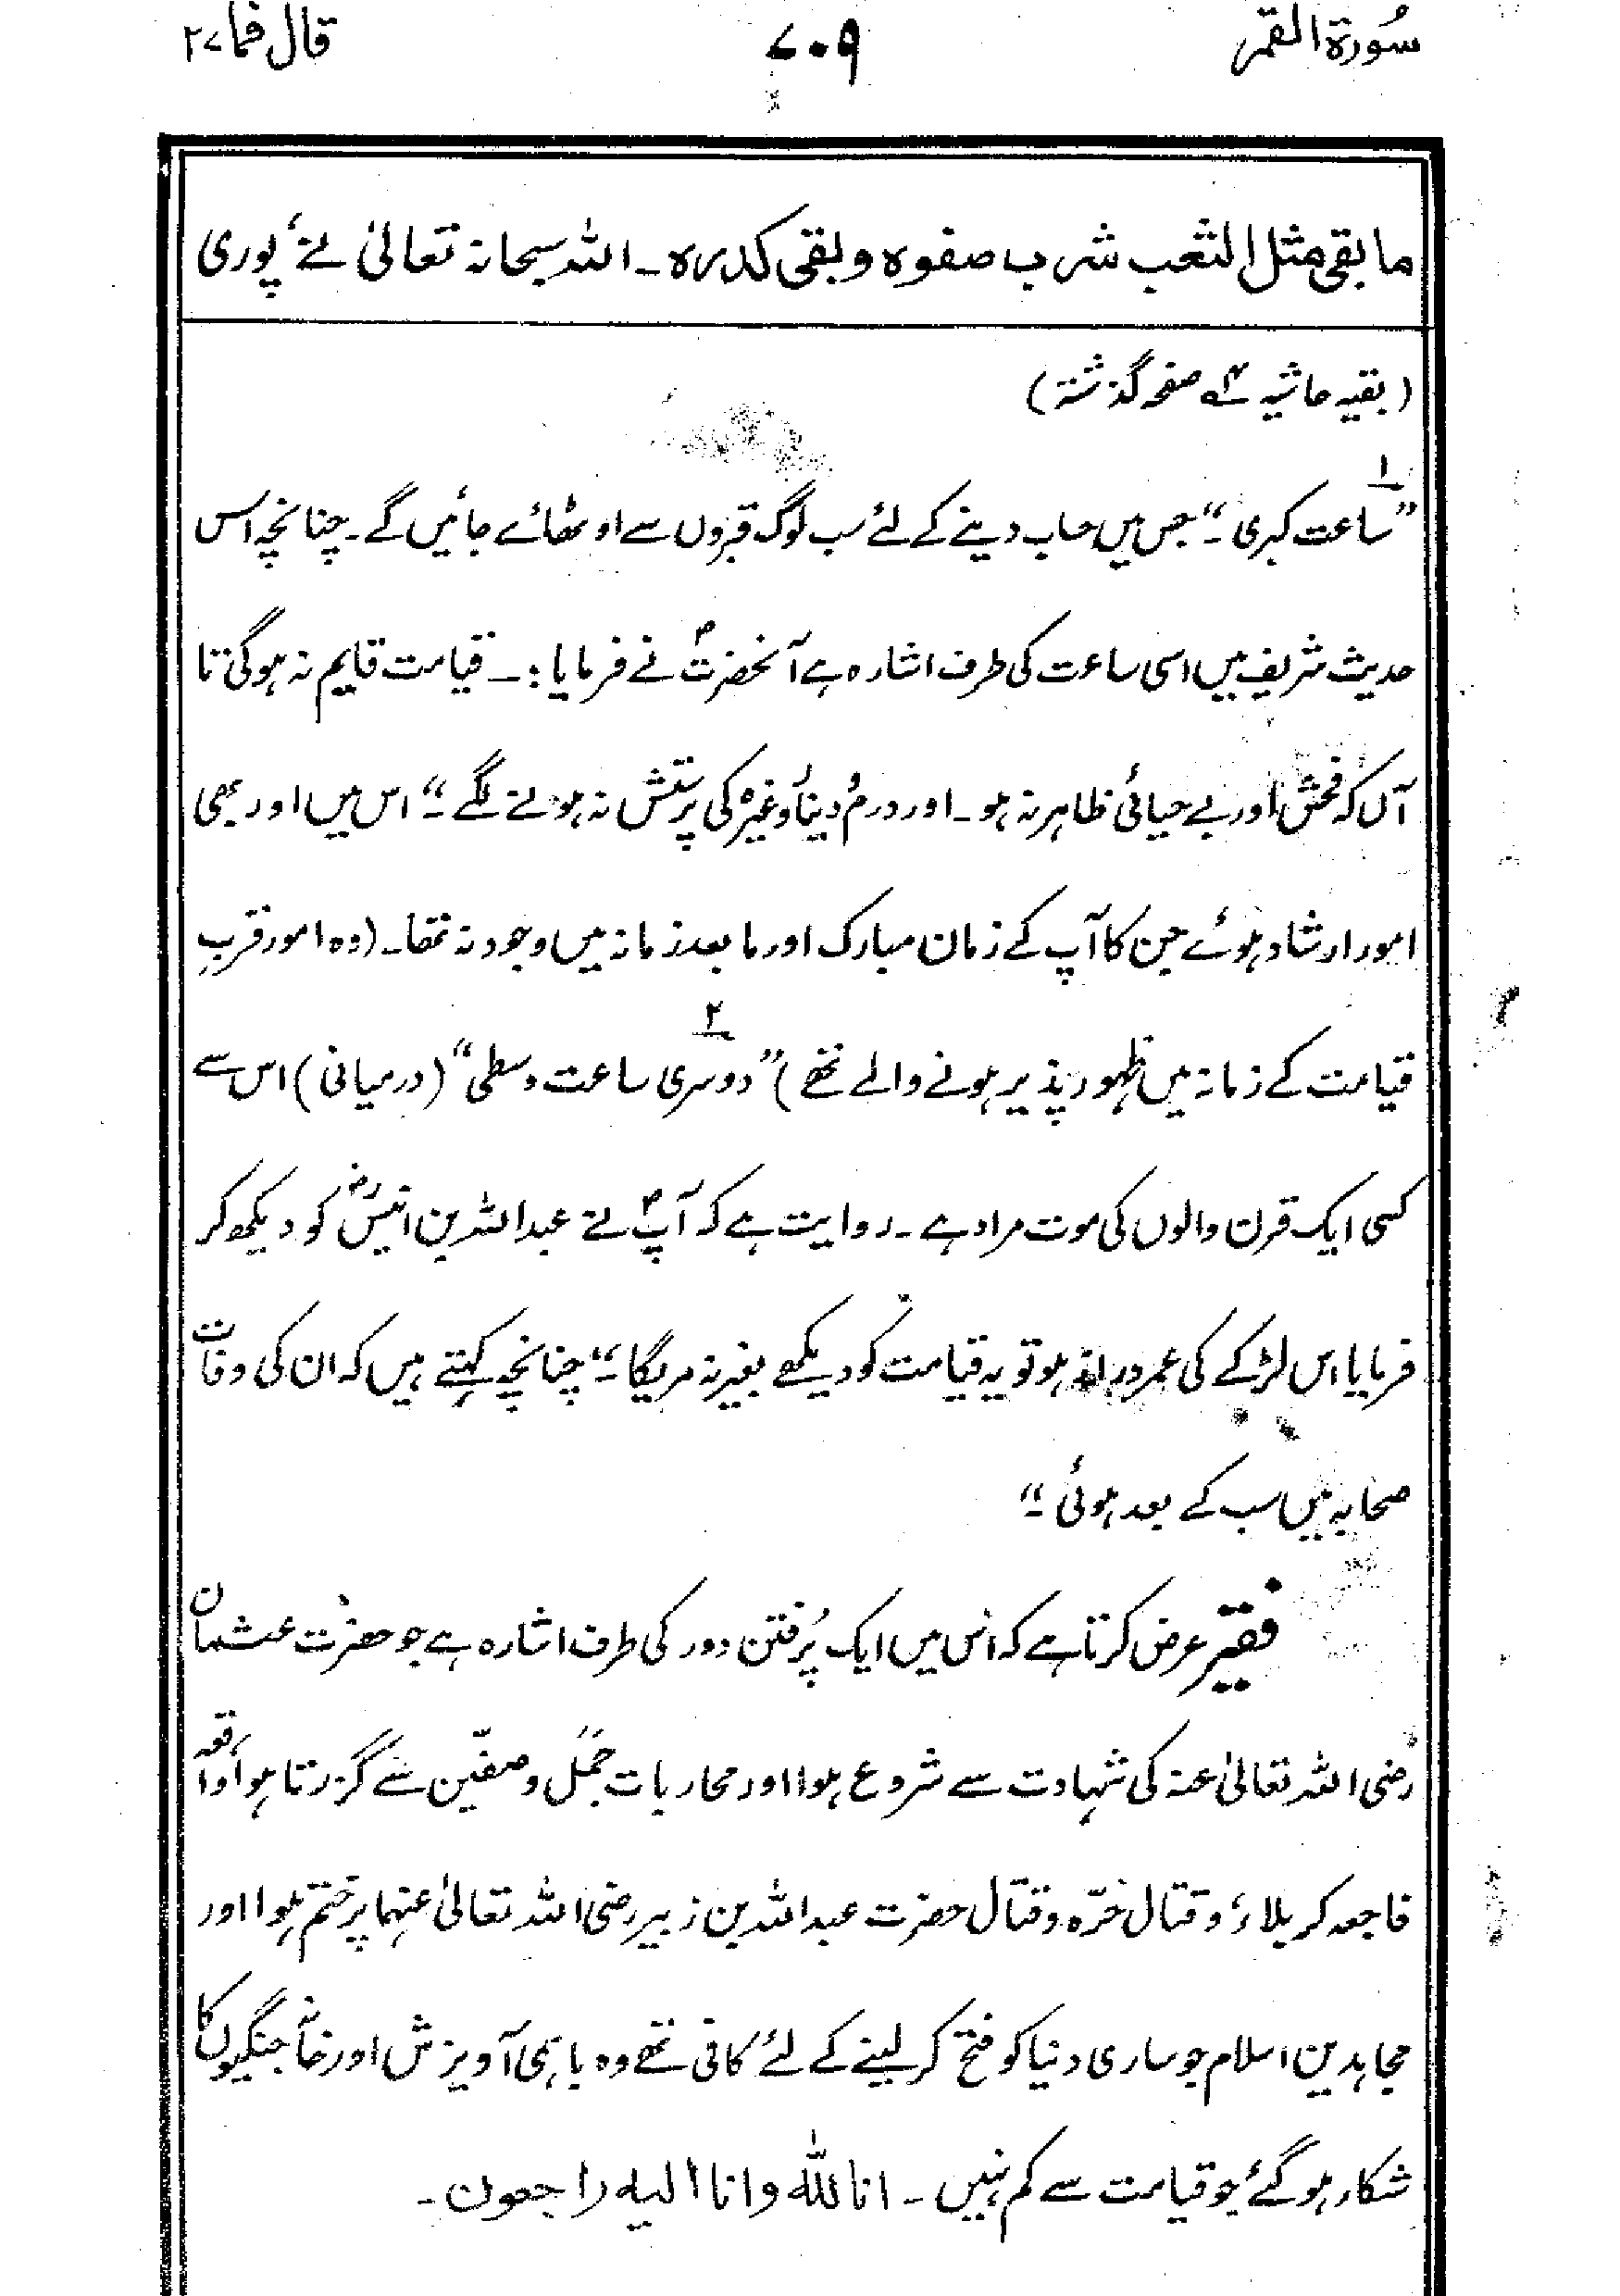 سُورۃ القمر ۷۰۹ قال فما ۲۷
ما بقی مثل الثعب شرب صفوہ وبقی کدرہ۔ اللہ سبحانہ تعالیٰ نے پوری
(بقیہ حاشیہ ۴ صفحہ گذشتہ)
۱
”ساعت کبری۔“ جس میں حساب دینے کے لئے سب لوگ قبروں سے اوٹھائے جائیں گے۔ چنانچہ اس
حدیث شریف میں اسی ساعت کی طرف اشارہ ہے آنحضرتؐ نے فرمایا:۔ قیامت قایم نہ ہوگی تا
آں کہ فحش اور بے حیائی ظاہر نہ ہو۔ اور درم دینار وغیرہ کی پرستش نہ ہونے لگے۔“ اس میں اور بھی
امور ارشاد ہوئے جن کا آپ کے زمان مبارک اور ما بعد زمانہ میں وجود نہ تھا۔ (وہ امور قربِ
۲
قیامت کے زمانہ میں ظہور پذیر ہونے والے تھے) ”دوسری ساعت وسطی“ (درمیانی) اس سے
کسی ایک قرن والوں کی موت مراد ہے۔ روایت ہے کہ آپؐ نے عبداللہ بن انیسؓ کو دیکھ کر
فرمایا اس لڑکے کی عمر دراز ہو تو یہ قیامت کو دیکھے بغیر نہ مریگا۔“ چنانچہ کہتے ہیں کہ ان کی وفات
صحابہ میں سب کے بعد ہوئی۔“
فقیر عرض کرتا ہے کہ اس میں ایک پُر فتن دور کی طرف اشارہ ہے جو حضرت عثمان
رضی اللہ تعالیٰ عنہ کی شہادت سے شروع ہوا اور محاربات جمل و صفّین سے گزرتا ہوا واقعہ
فاجعہ کربلاء و قتال حرّہ و قتال حضرت عبداللہ بن زبیر رضی اللہ تعالیٰ عنہما پر ختم ہوا اور
مجاہدین اسلام جو ساری دنیا کو فتح کر لینے کے لئے کافی تھے وہ باہمی آویزش اور خانہ جنگیوں کا
شکار ہو گئے جو قیامت سے کم نہیں۔ انا للہ وانا الیہ راجعون۔